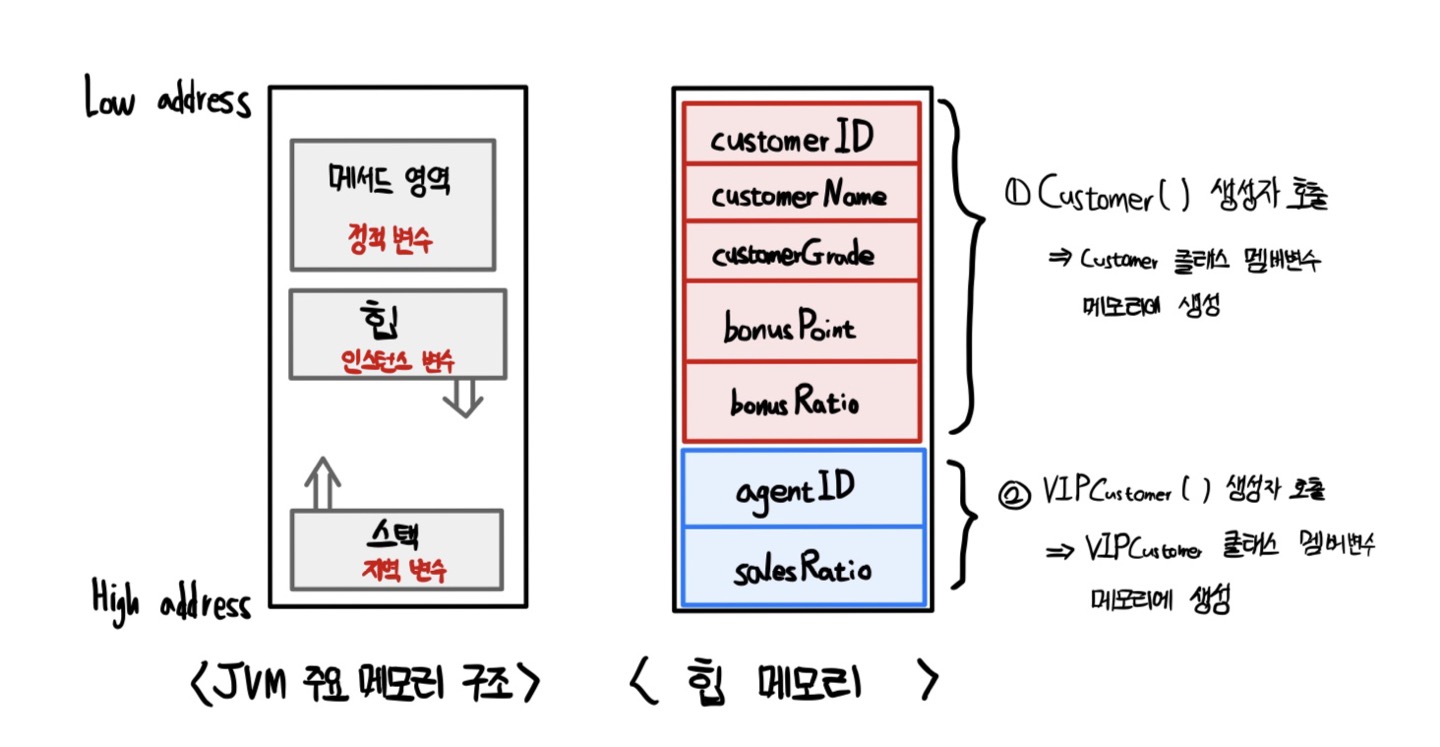 Low address
메서드 영역
정적 변수
힙
인스턴스 변수
스택
지역 변수
High address
<JVM 주요 메모리 구조>
customerID
customerName
customerGrade
bonusPoint
bonusRatio
agentID
salesRatio
< 힙 메모리 >
① Customer() 생성자 호출
⇒ Customer 클래스 멤버변수
메모리에 생성
② VIPCustomer() 생성자 호출
⇒ VIPCustomer 클래스 멤버변수
메모리에 생성